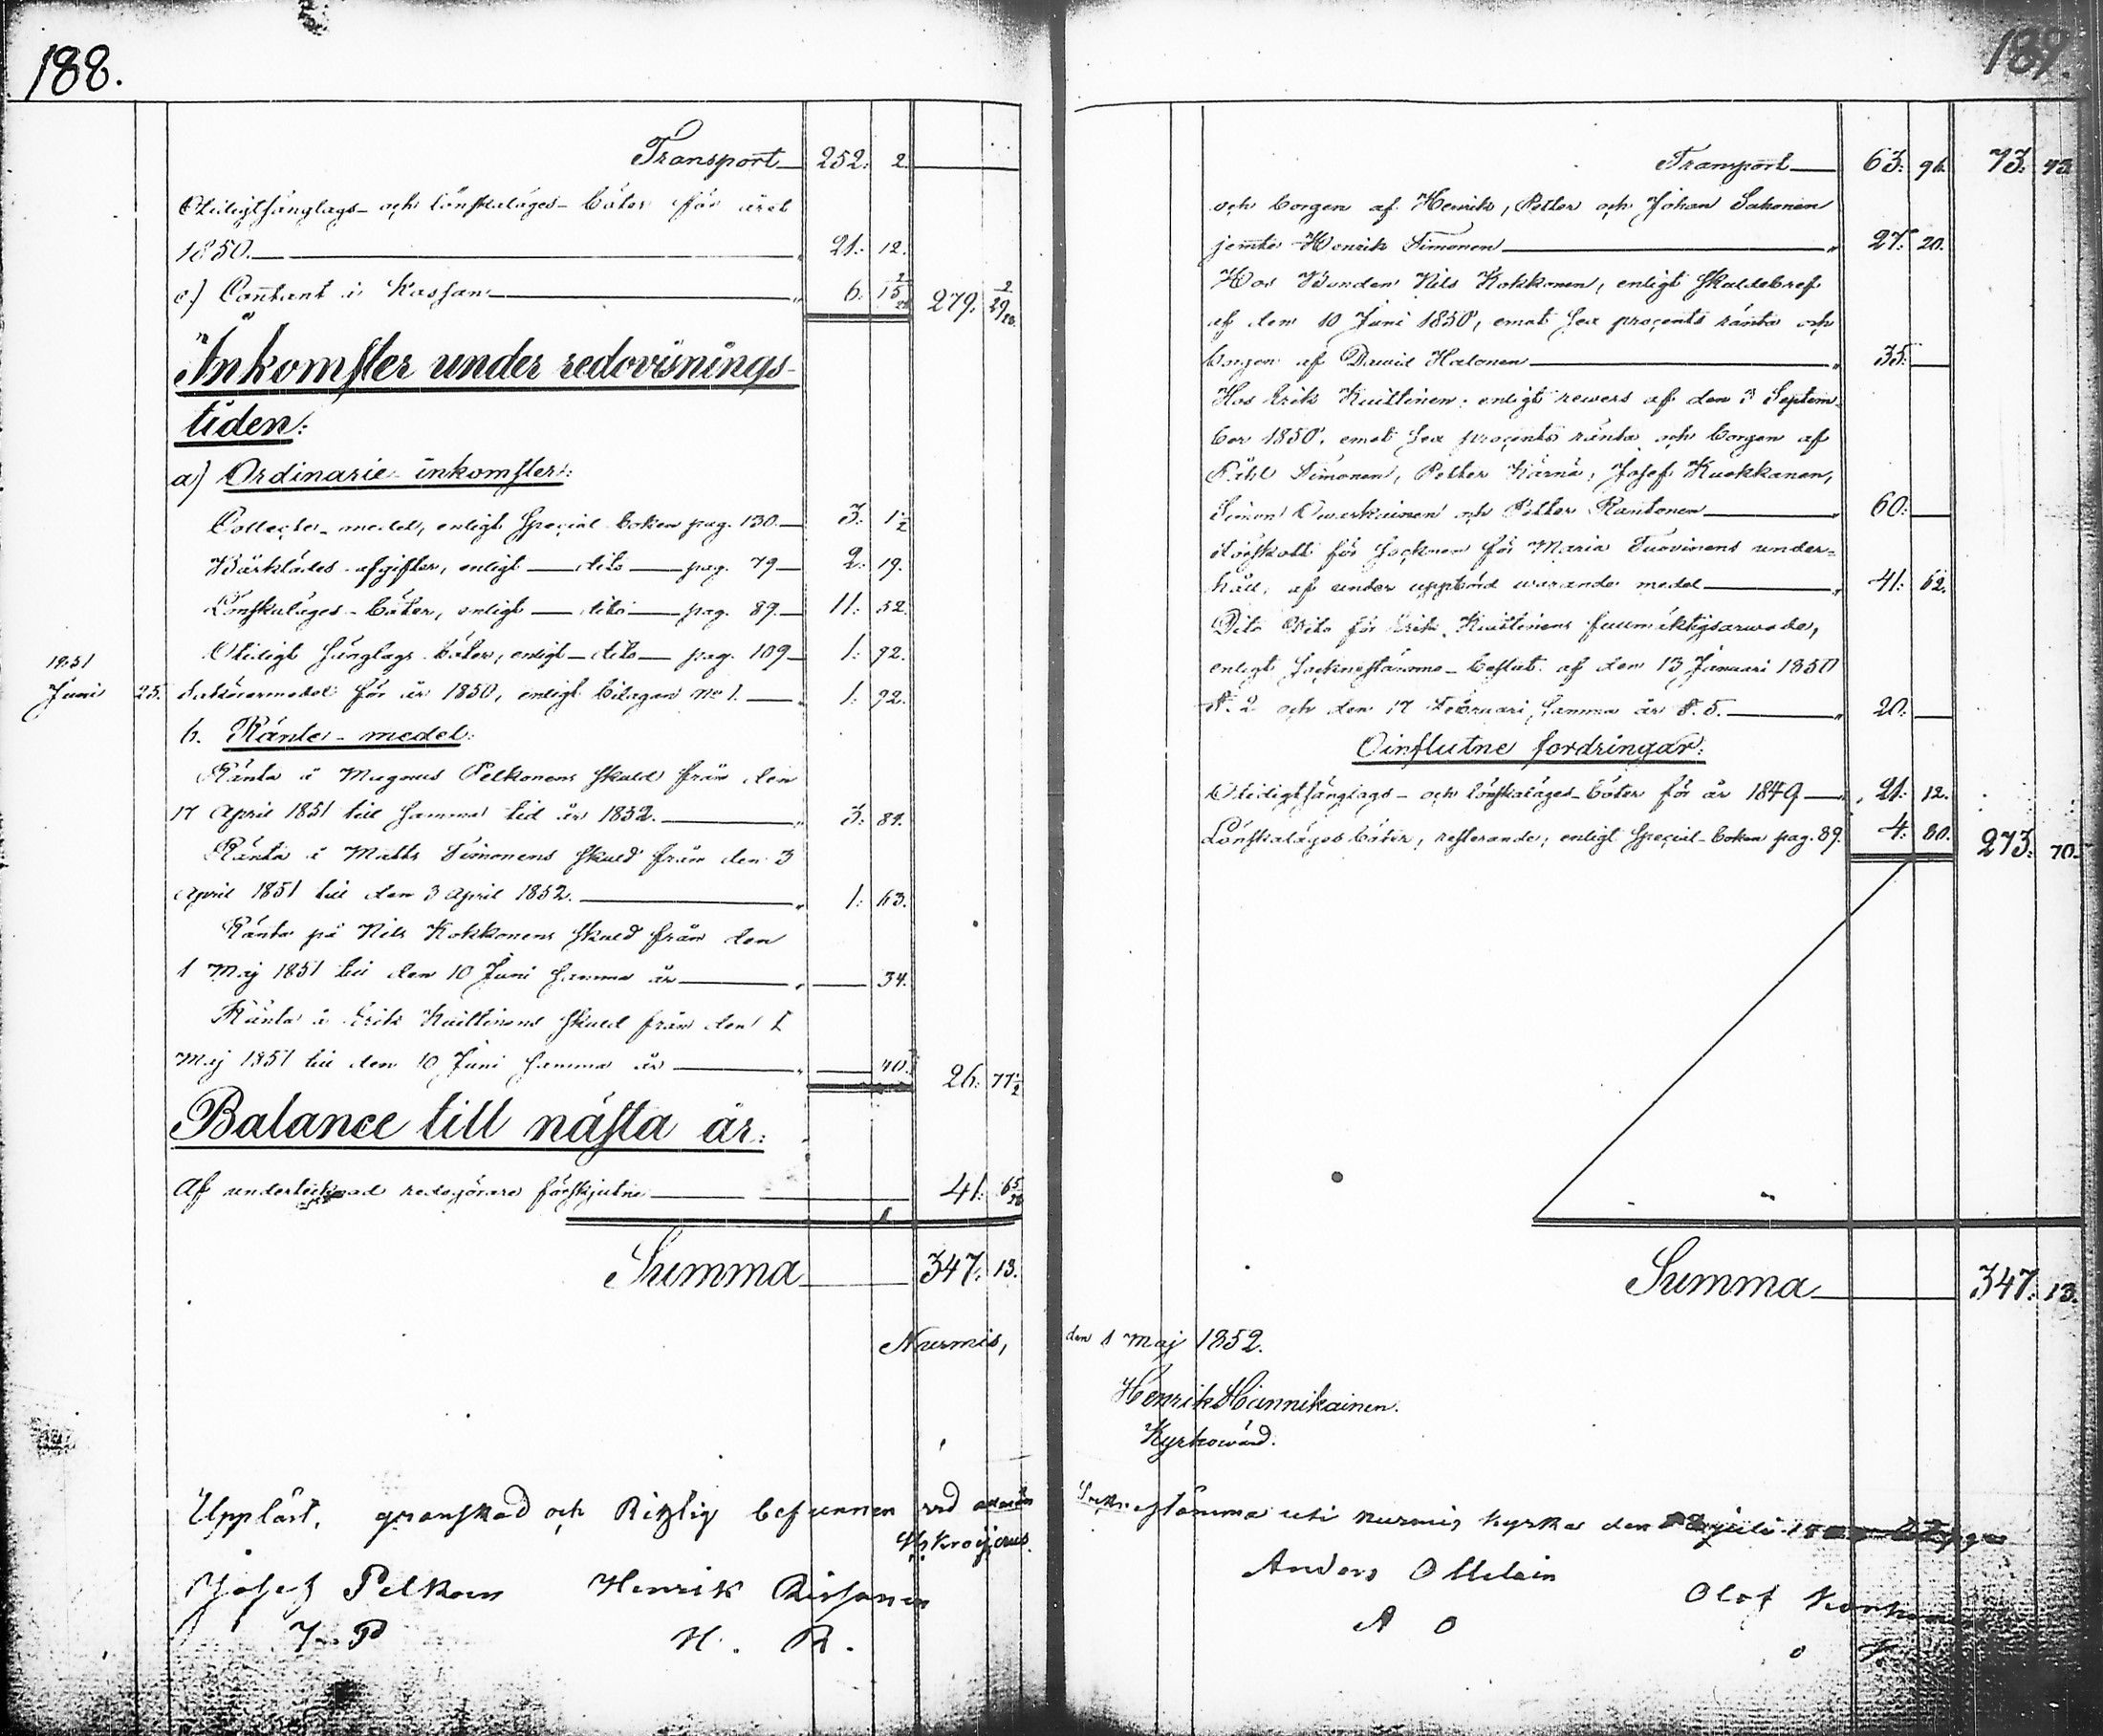 188.
Transport 252: 2.
Otidigtsänglags- och lönskaläges-böter för året
1850. 21: 12.
c) Contant i Kassan 6: 279.
Inkomster under redovisnings-
tiden:
a) Ordinarie inkomster:
Collecte-medel, enligt Special boken pag. 130. 3: 1½
Bårklädes-afgifter, enligt dito pag. 79 2: 19.
Lönskaläges-böter, enligt dito pag. 89. 11: 52.
Otidigt sänglags böter, enligt dito pag. 109 1: 92.
1851 Juni 25. för år 1850, enligt bilagan No 1. 1: 92.
b. Ränte-medel:
Ränta å Magnus Pelkonens skuld från den
17 April 1851 till samma tid år 1852. 3: 84.
Ränta å Matts Simonens skuld från den 3
April 1851 till den 3 April 1852. 1: 63.
Ränta på Nils Kokkonens skuld från den
1 Maj 1851 till den 10 Juni samma år 34.
Ränta å Erik Kuittinens skuld från den 1
Maj 1851 till den 10 Juni samma år 40. 26: 77½
Balance till nästa år:
Af undertecknad redogörare förskjutne 41:
Summa 347: 13.
Nurmis,
Uppläst, granskad och Riktig befunnen vid
Josef Pelkoin Henrik
J. P H. R.
189.
Transport 63: 96. 73: 43
och borgen af Henrik, Petter och Johan Sahonen
jemte Henrik Simonen 27: 20.
Hos Bonden Nils Kokkonen, enligt skuldebref
af den 10 Juni 1850, emot sex procents ränta och
borgen af David Halonen 35:
Hos Erik Kuittinen, enligt revers af den 3 Septem-
ber 1850, emot sex procents ränta och borgen af
Påhl Simonen, Petter Kärnä, Josef Kuokkanen,
Simon och Petter Rantonen 60:
Förskott för Socknen för Maria Tuovinens under-
håll, af under uppbörd warande medel 41: 62.
Dito Dito för Erik Kuittinens
enligt Socknestämmo-beslut af den 13 Januari 1850
§. 2 och den 17 Februari samma år §. 5. 20:
Oinflutne fordringar:
Otidigtsänglags- och lönskaläges-böter för år 1849 21: 12.
Lönskaläges böter, resterande, enligt Special-boken pag. 89. 4: 80. 273: 70.
Summa 347: 13.
den 1 Maj 1852.
Henrik Hännikäinen.
Kyrkovärd.
stämma uti Nurmis kyrka den
Anders
A O
Olof
O K